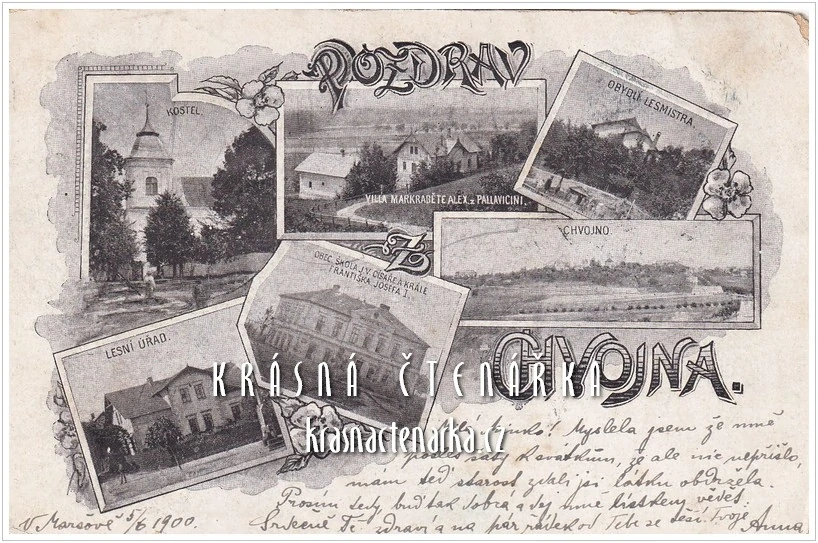 POZDRAV
KOSTEL.
VILLA MARKRABĚTE ALEX. z PALLAVICINI.
OBYDLÍ LESMISTRA.
ZE
CHVOJNO.
OBEC. ŠKOLA J. V. CÍSAŘE A KRÁLE
FRANTIŠKA JOSEFA I.
LESNÍ ÚŘAD.
CHVOJNA.
KRÁSNÁ ČTENÁŘKA
krasnactenarka.cz
Milá! Myslela jsem že mně
pošleš šaty k svátkům, že ale nic nepřišlo,
mám teď starost zdali jsi látku obdržela.
Prosím tedy, buď tak dobrá a dej mně lístkem vědět.
Srdečně Tě zdraví a na pár řádek od Tebe se těší Tvoje Anna
V Maršově 5/6 1900.